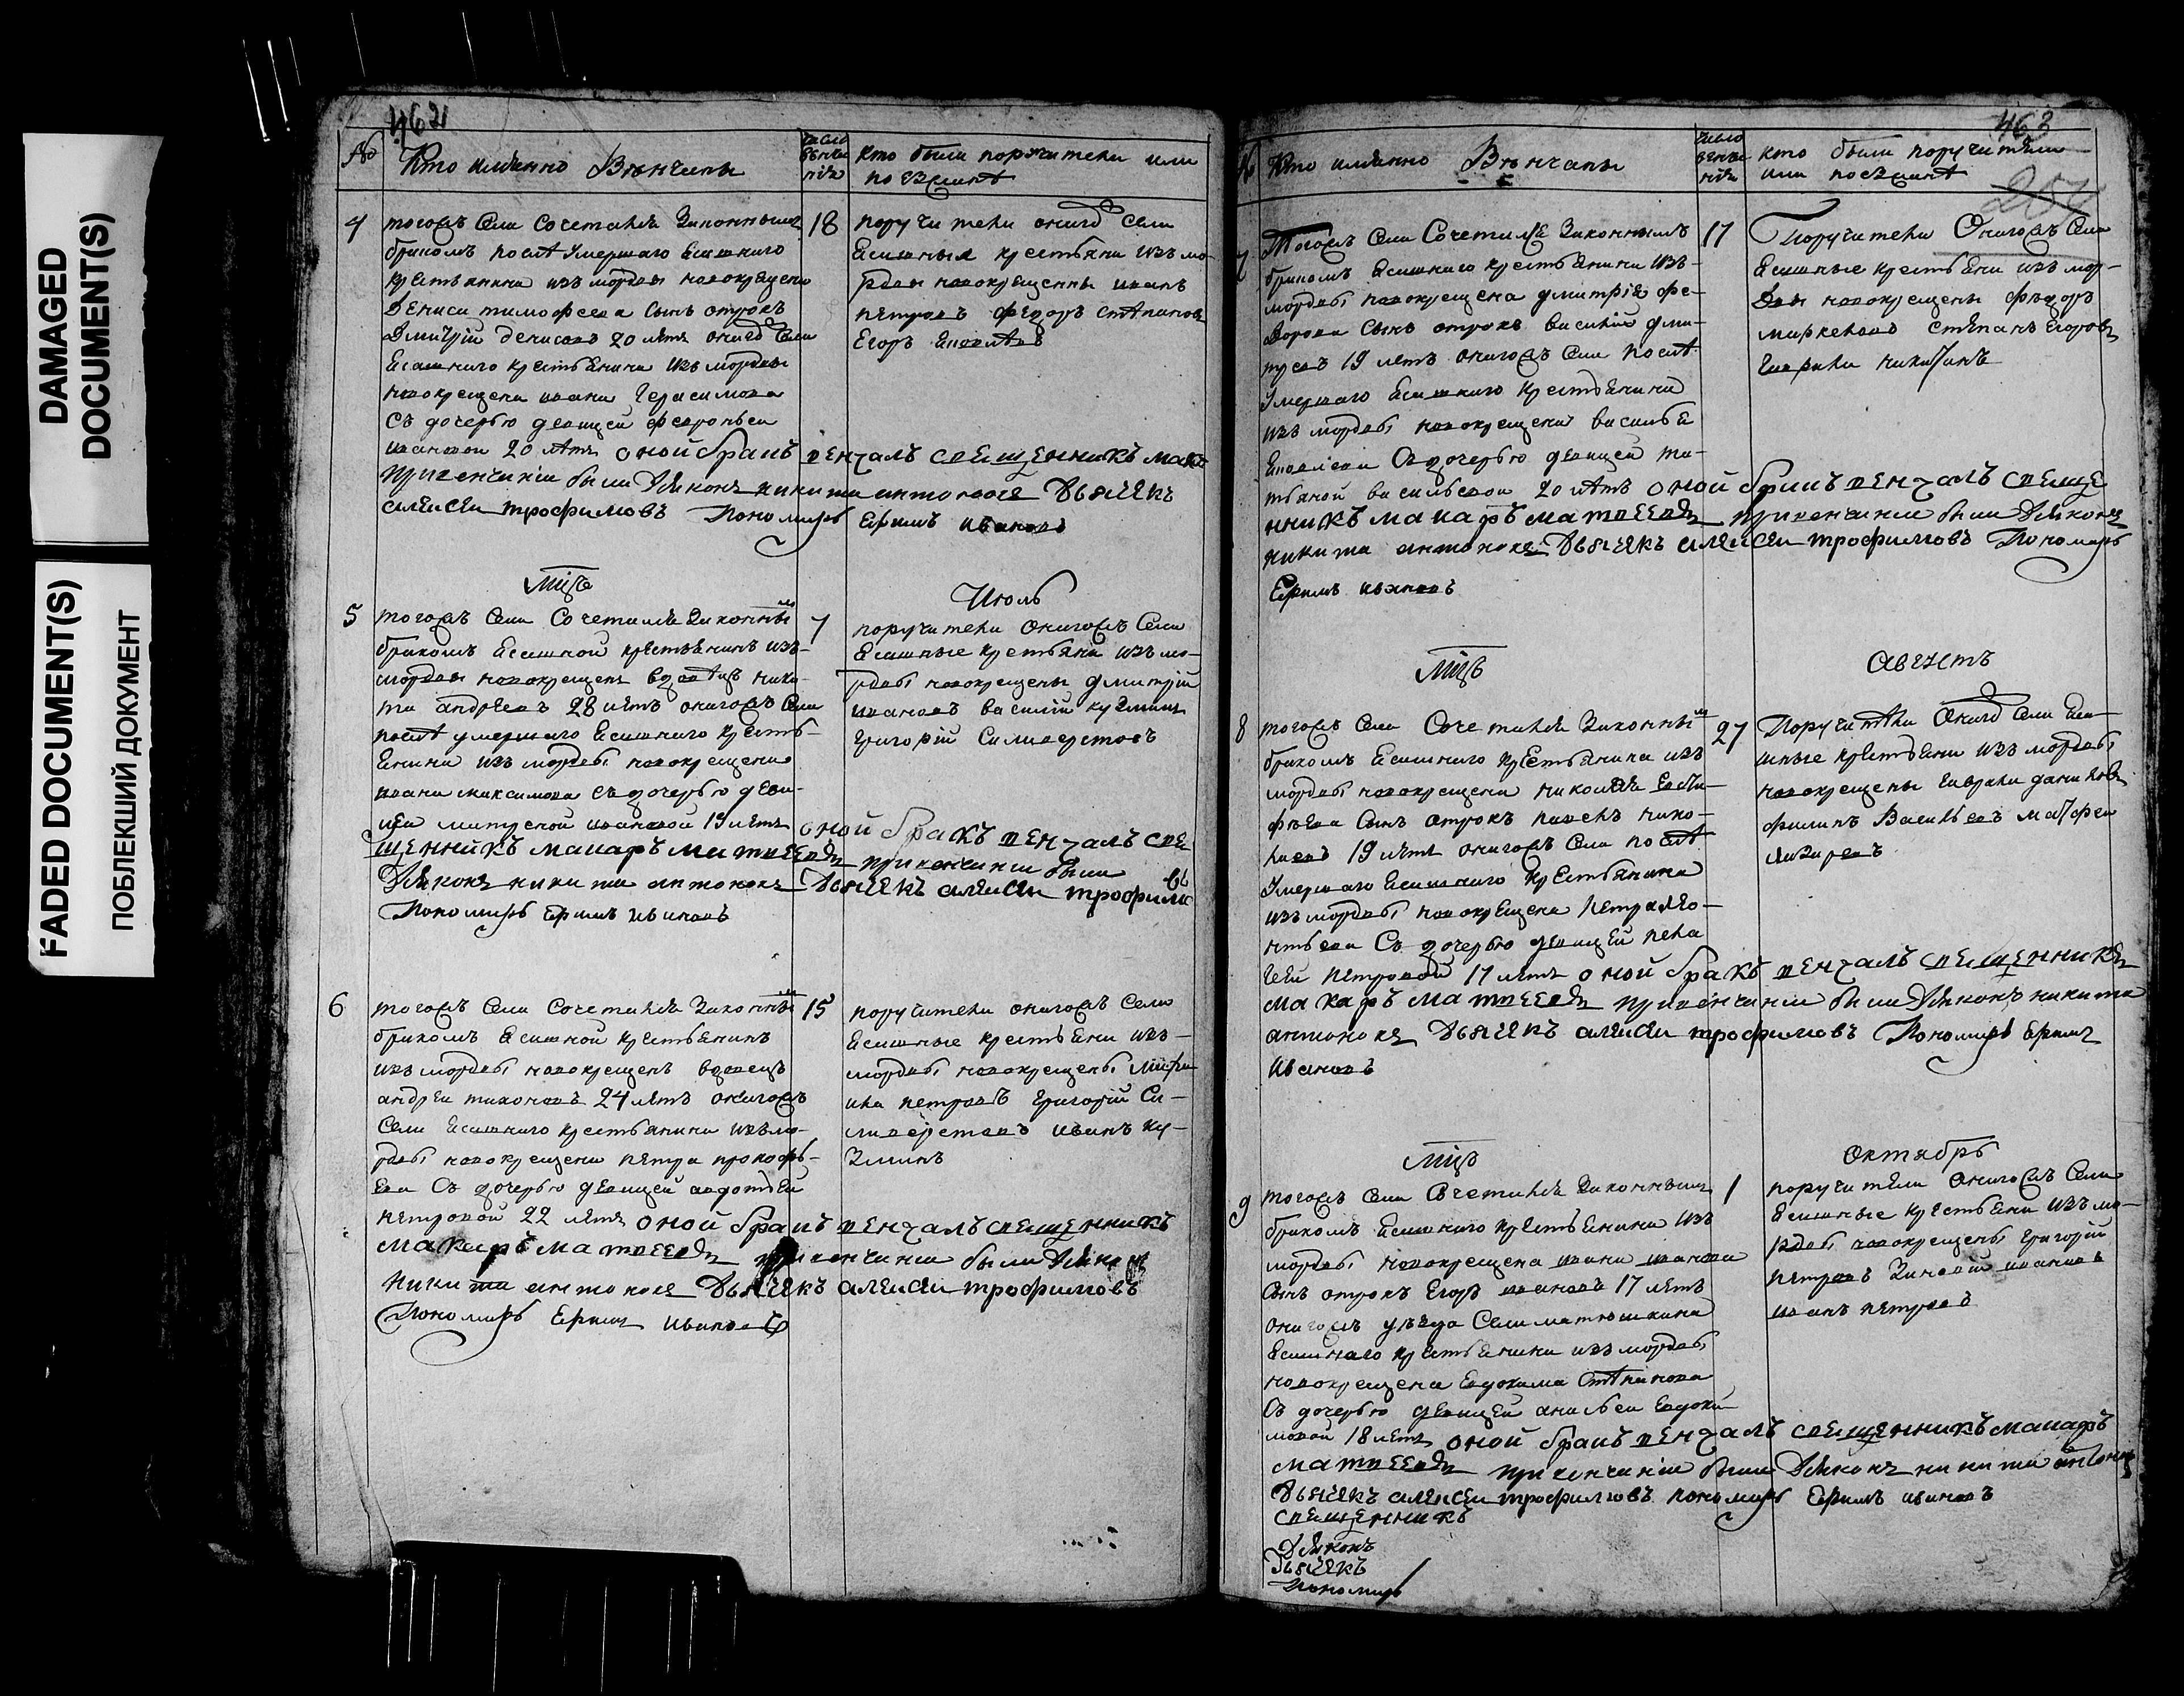 DAMAGED
DOCUMENT(S)
FADED DOCUMENT(S)
ПОБЛЕКШИЙ ДОКУМЕНТ
462
№ Кто имянно Венчаны
число венчанія
кто были поручители или поезжанѣ
4 тогожъ села Сочетанъ законнымъ 18
бракомъ послѣ умершаго Ясашнаго
крестьянина изъ мордвы новокрещена
Дениса тимофеева сынъ отрокъ
Дмитрій денисовъ 20 летъ онагожъ села
Ясашнаго крестьянина изъ мордвы
новокрещена ивана Герасимова
съ дочерью девицей февроньей
ивановой 20 летъ оной бракъ венчалъ священникъ
при венчаніи были Діаконъ никита антоновъ Дьячекъ
алексеи трофимовъ Пономарь Ефимъ ивановъ
поручители онагожъ села
Ясашныя крестьяни изъ мо-
рдвы новокрещены иванъ
петровъ федоръ степановъ
Егоръ
мцъ Июль
5 тогожъ села Сочетанъ законны 7
бракомъ Ясашной крестьянинъ изъ
мордвы новокрещенъ вдовецъ ники-
та андреевъ 28 летъ онагожъ села
послѣ умершаго Ясашнаго кресть-
янина изъ мордвы новокрещена
ивана максимова съ дочерью деви-
цей ивановой 19 летъ оной бракъ венчалъ свя
щенникъ макаръ матвеевъ при венчаніи были
Діаконъ никита антоновъ Дьячекъ алексеи трофимовъ
Пономарь Ефимъ ивановъ
поручители онагожъ села
Ясашные крестьяни изъ мо-
рдвы новокрещены дмитрій
ивановъ василій кузминъ
григорій Саливерстовъ
6 тогожъ села Сочетанъ законны 15
бракомъ Ясашной крестьянинъ
изъ мордвы новокрещенъ вдовецъ
андреи тихоновъ 24 летъ онагожъ
села Ясашнаго крестьянина изъ мо-
рдвы новокрещена петра прокофь-
ева съ дочерью девицей авдотьей
петровой 22 летъ оной бракъ венчалъ священникъ
макаръ матвеевъ при венчаніи были Діаконъ
никита антоновъ Дьячекъ алексеи трофимовъ
Пономарь Ефимъ ивановъ
поручители онагожъ села
Ясашные крестьяни изъ
мордвы новокрещены
петровъ григорій Са-
ливерстовъ иванъ ку-
зминъ
463
204
№ Кто имянно Венчаны
число венчанія
кто были поручители
или поезжанѣ
7 Тогожъ села Сочетанъ законнымъ 17
бракомъ Ясашнаго крестьянина изъ
мордвы новокрещена дмитрія фе-
дорова сынъ отрокъ василій дми-
тревъ 19 летъ онагожъ села послѣ
умершаго Ясашнаго крестьянина
изъ мордвы новокрещена василья
съ дочерью девицей та-
тьяной васильевой 20 летъ оной бракъ венчалъ свяще
нникъ макаръ матвеевъ при венчаніи были Діаконъ
никита антоновъ Дьячекъ алексеи трофимовъ Пономарь
Ефимъ ивановъ
Поручители Онагожъ села
Ясашные крестьяни изъ мор-
двы новокрещены федоръ
маркеловъ степанъ егоровъ
гаврила никитинъ
мцъ Августъ
8 тогожъ села Сочетанъ законны 27
бракомъ Ясашнаго крестьянина изъ
мордвы новокрещена николая
сынъ отрокъ павелъ нико-
лаевъ 19 летъ онагожъ села послѣ
умершаго Ясашнаго крестьянина
изъ мордвы новокрещена петра лео-
нтьева съ дочерью девицей пела
геей петровой 17 летъ оной бракъ венчалъ священникъ
макаръ матвеевъ при венчаніи были Діаконъ никита
антоновъ Дьячекъ алексеи трофимовъ Пономарь Ефимъ
ивановъ
Поручители онагожъ села Яса-
шные крестьяни изъ мордвы
новокрещены гаврила даниловъ
филипъ Васильевъ матфеи
лазаревъ
мцъ Октябрь
9 тогожъ села Сочетанъ законнымъ 1
бракомъ Ясашнаго крестьянина изъ
мордвы новокрещена ивана иванова
сынъ отрокъ Егоръ ивановъ 17 летъ
онагожъ уезда села матюшкина
Ясашнаго крестьянина изъ мордвы
новокрещена Евдокима степанова
съ дочерью девицей Евдоки-
мовой 18 летъ оной бракъ венчалъ священникъ макаръ
матвеевъ при венчаніи были Діаконъ никита антоновъ
Дьячекъ алексеи трофимовъ пономарь Ефимъ ивановъ
священникъ
Діаконъ
Дьячекъ
Пономарь
поручители онагожъ села
Ясашные крестьяни изъ мо-
рдвы новокрещены григорій
петровъ Зиновій ивановъ
иванъ петровъ